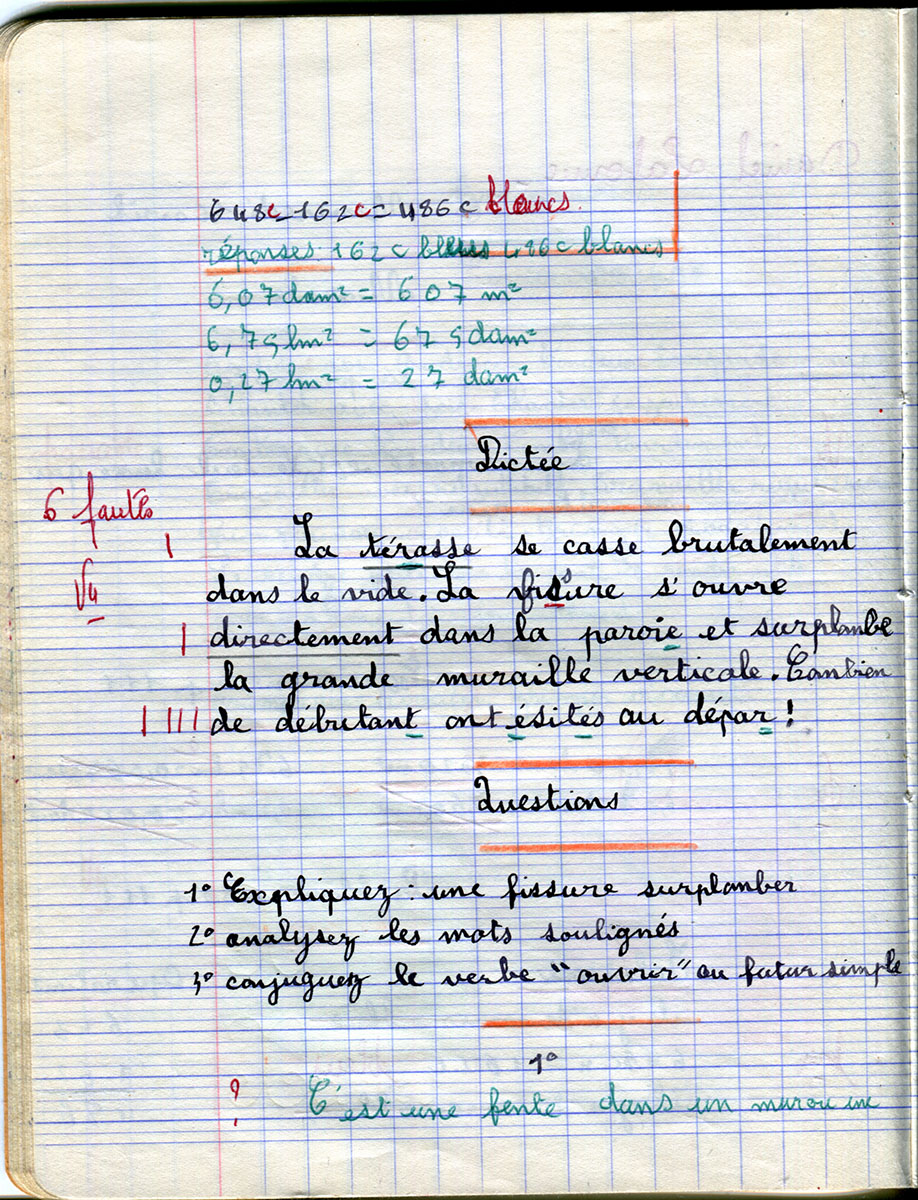 648c-162c=486c blancs
réponses 162c bleus 486c blancs
6,07 dam² = 607 m²
6,75 hm² = 675 dam²
0,27 hm² = 27 dam²
Dictée
6 fautes
La térasse se casse brutalement
V4
dans le vide. La fissure s'ouvre
directement dans la paroie et surplanbe
la grande muraille verticale. Conbien
de débutant ont ésités au dépar !
Questions
1° Expliquez : une fissure surplanber
2° analysez les mots soulignés
3° conjuguez le verbe "ouvrir" au futur simple
1°
? C'est une fente dans un mur ou une